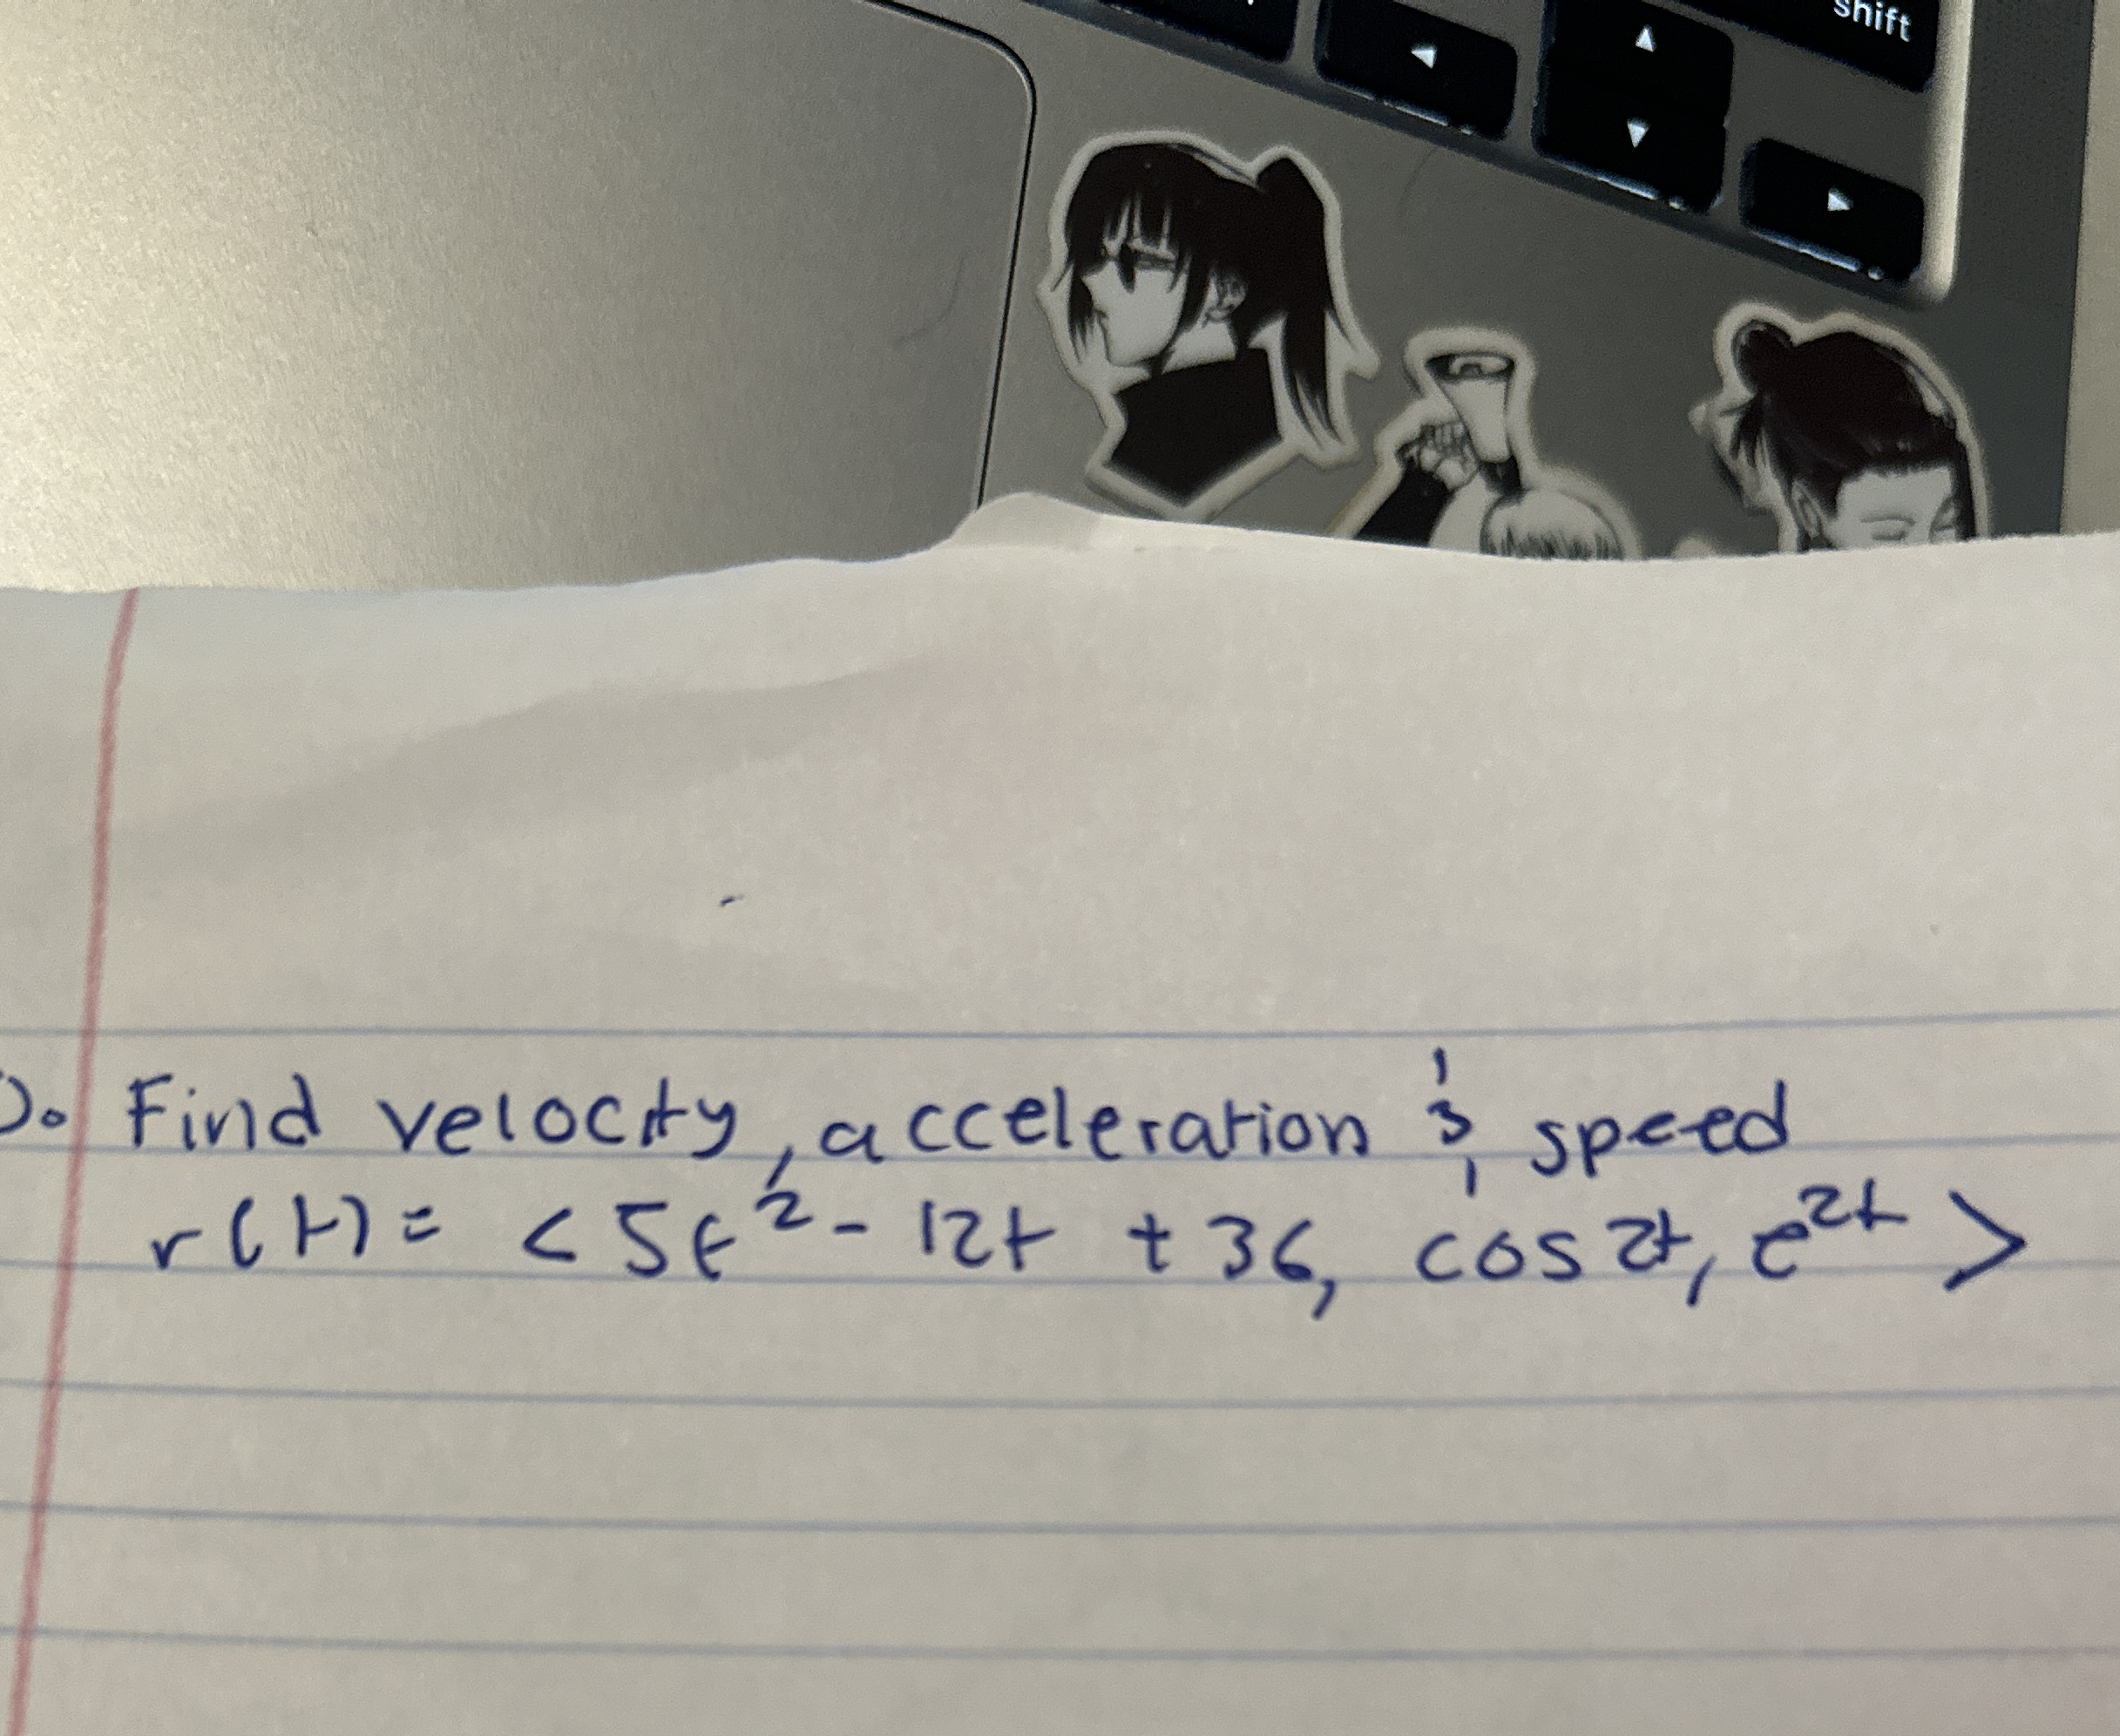 shift
Find velocity, acceleration & speed
r(t) = < 5t² - 12t + 36, cos 2t, e²ᵗ >